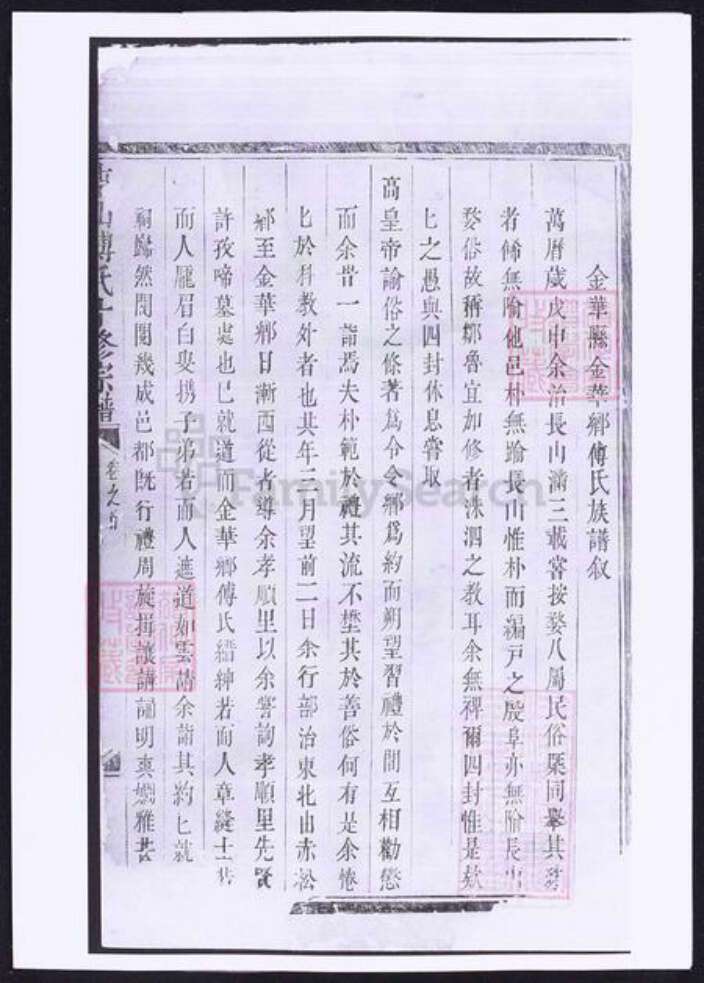 金華縣金華鄉傅氏族譜叙
萬曆歲戊申余治長山滿三載嘗按婺八屬民俗槩同舉其殊
者俻無踰他邑朴無踰長山惟朴而編戸之殷阜亦無踰長山
婺俗故稱鄒魯宜加修者洙泗之教耳余無裨爾四封惟是款
匕之愚與四封休息嘗取
高皇帝諭俗之條著爲令令鄉爲約而朔望習禮於間互相勸懲
而余昔一詣焉夫朴範於禮其流不埜其於善俗何有是余惓
匕於科教外者也其年三月望前二日余行部治東北由赤松
鄉至金華鄉日漸西從者導余孝順里以余嘗詢孝順里先賢
許孜啼墓處也已就道而金華鄉傅氏縉紳若而人章縫士若
而人龎眉白叟携子弟若而人遮道如雲請余詣其約匕就
祠巋然閥閱幾成邑都既行禮周旋揖讓講誦明爽嫺雅若
山傅氏 修宗譜
卷之首
FamilySearch